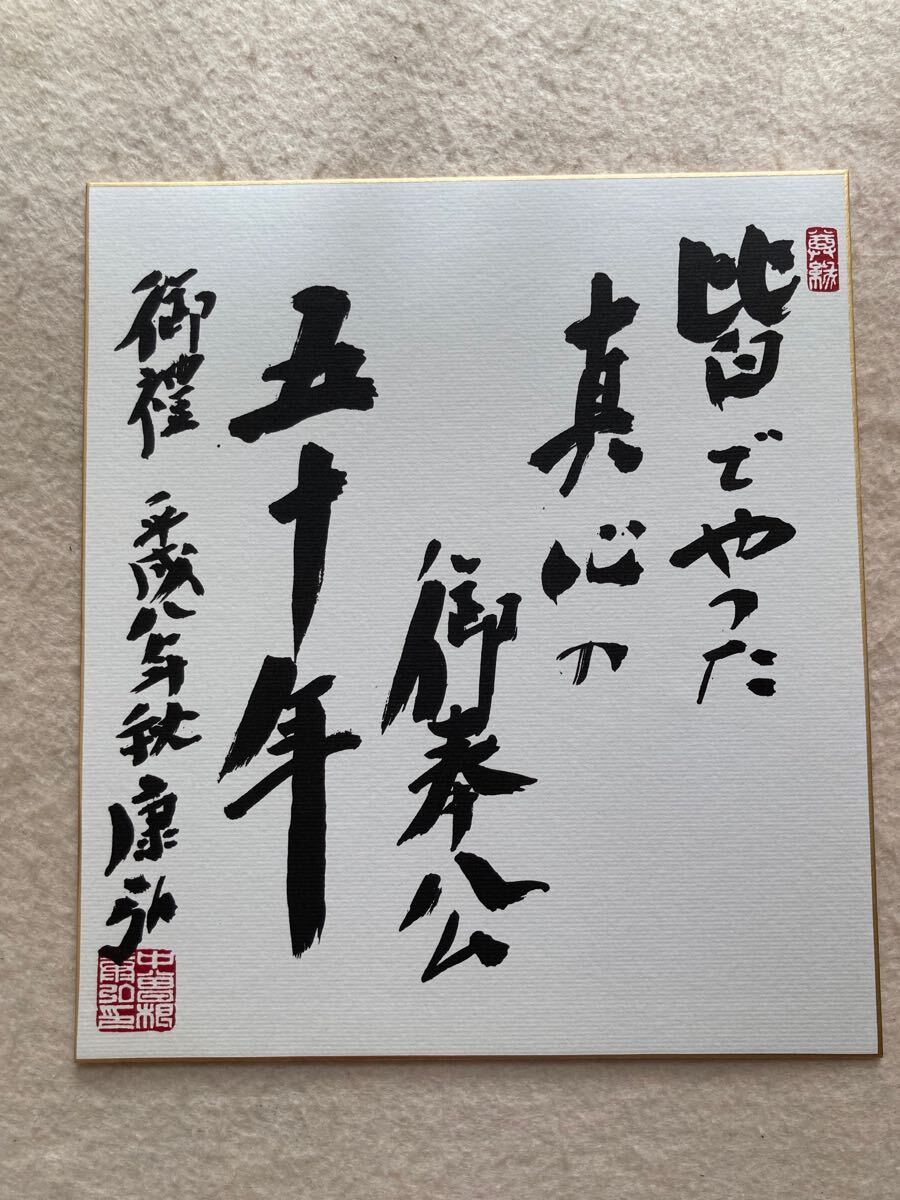 皆でやった
真心の
御奉公
五十年
御禮 平成八年秋 康弘
尊縁
中曽根康弘印